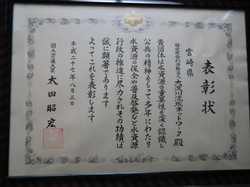 表彰状
宮崎県
特定非営利活動法人大淀川流域ネットワーク 殿
貴団体は水資源の重要性を深く認識し
公共の精神をもって多年にわたり
水資源の保全や普及啓発など水資源
行政の推進に尽力されその功績は
誠に顕著であります
よってこれを表彰します
平成二十七年八月三日
国土交通大臣 太田昭宏